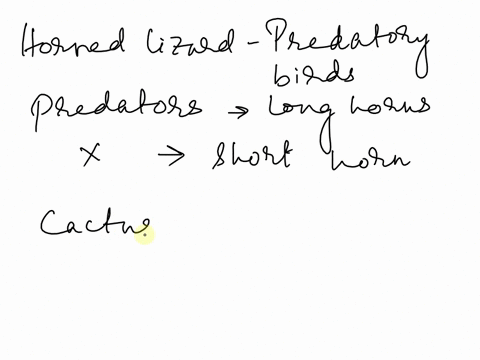 Horned lizard - Predatory
birds
Predators → Long horns
X → Short horn
Cactus